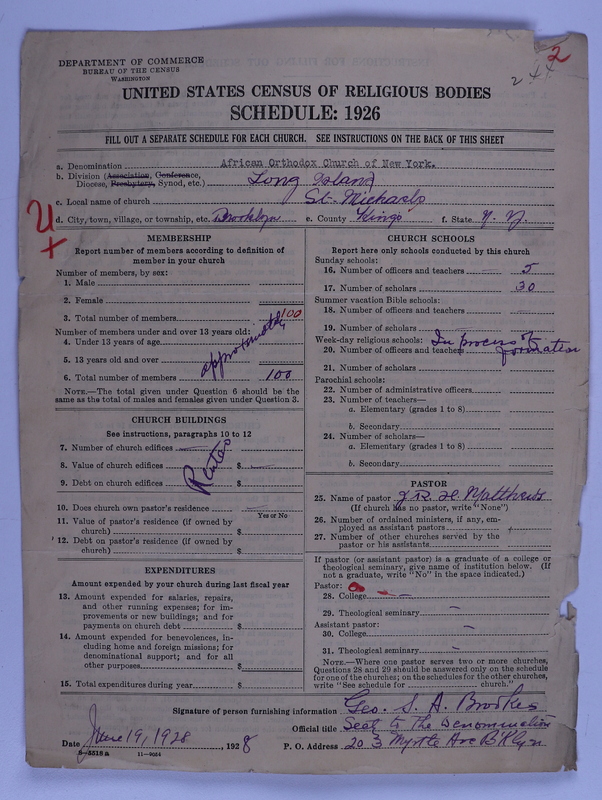 2
244
DEPARTMENT OF COMMERCE
BUREAU OF THE CENSUS
WASHINGTON
UNITED STATES CENSUS OF RELIGIOUS BODIES
SCHEDULE: 1926
FILL OUT A SEPARATE SCHEDULE FOR EACH CHURCH. SEE INSTRUCTIONS ON THE BACK OF THIS SHEET
a. Denomination African Orthodox Church of New York.
b. Division (Association, Conference,
Diocese, Presbytery, Synod, etc.) Long Island
c. Local name of church St. Michaels
d. City, town, village, or township, etc. Brooklyn e. County Kings f. State N. Y.
MEMBERSHIP
Report number of members according to definition of
member in your church
Number of members, by sex:
1. Male
2. Female
3. Total number of members 100
Number of members under and over 13 years old:
4. Under 13 years of age
5. 13 years old and over
approximately
6. Total number of members 100
NOTE.—The total given under Question 6 should be
same as the total of males and females given under Question 3.
CHURCH BUILDINGS
See instructions, paragraphs 10 to 12
7. Number of church edifices
8. Value of church edifices $
9. Debt on church edifices $
Rented
10. Does church own pastor's residence
Yes or No
11. Value of pastor's residence (if owned by
church) $
12. Debt on pastor's residence (if owned by
church) $
EXPENDITURES
Amount expended by your church during last fiscal year
13. Amount expended for salaries, repairs,
and other running expenses; for im-
provements or new buildings; and for
payments on church debt $
14. Amount expended for benevolences, in-
cluding home and foreign missions; for
denominational support; and for all
other purposes $
15. Total expenditures during year $
CHURCH SCHOOLS
Report here only schools conducted by this church
Sunday schools:
16. Number of officers and teachers 5
17. Number of scholars 30
Summer vacation Bible schools:
18. Number of officers and teachers
19. Number of scholars
Week-day religious schools: In process of
20. Number of officers and teachers formation
21. Number of scholars
Parochial schools:
22. Number of administrative officers
23. Number of teachers—
a. Elementary (grades 1 to 8)
b. Secondary
24. Number of scholars—
a. Elementary (grades 1 to 8)
b. Secondary
PASTOR
25. Name of pastor J. R. H. Matthews
(If church has no pastor, write "None")
26. Number of ordained ministers, if any, em-
ployed as assistant pastors
27. Number of other churches served by the
pastor or his assistants
If pastor (or assistant pastor) is a graduate of a college or
theological seminary, give name of institution below. (If
not a graduate, write "No" in the space indicated.)
Pastor:
28. College
29. Theological seminary
Assistant pastor:
30. College
31. Theological seminary
NOTE.—Where one pastor serves two or more churches,
Questions 28 and 29 should be answered only on the schedule
for one of the churches; on the schedules for the other churches,
write "See schedule for church."
Signature of person furnishing information Geo. S. A. Brookes
Official title Secty to The Denomination
Date June 19, 1928, 1928 P. O. Address 203 Myrtle Ave B'Klyn
8—5518a 11—9054